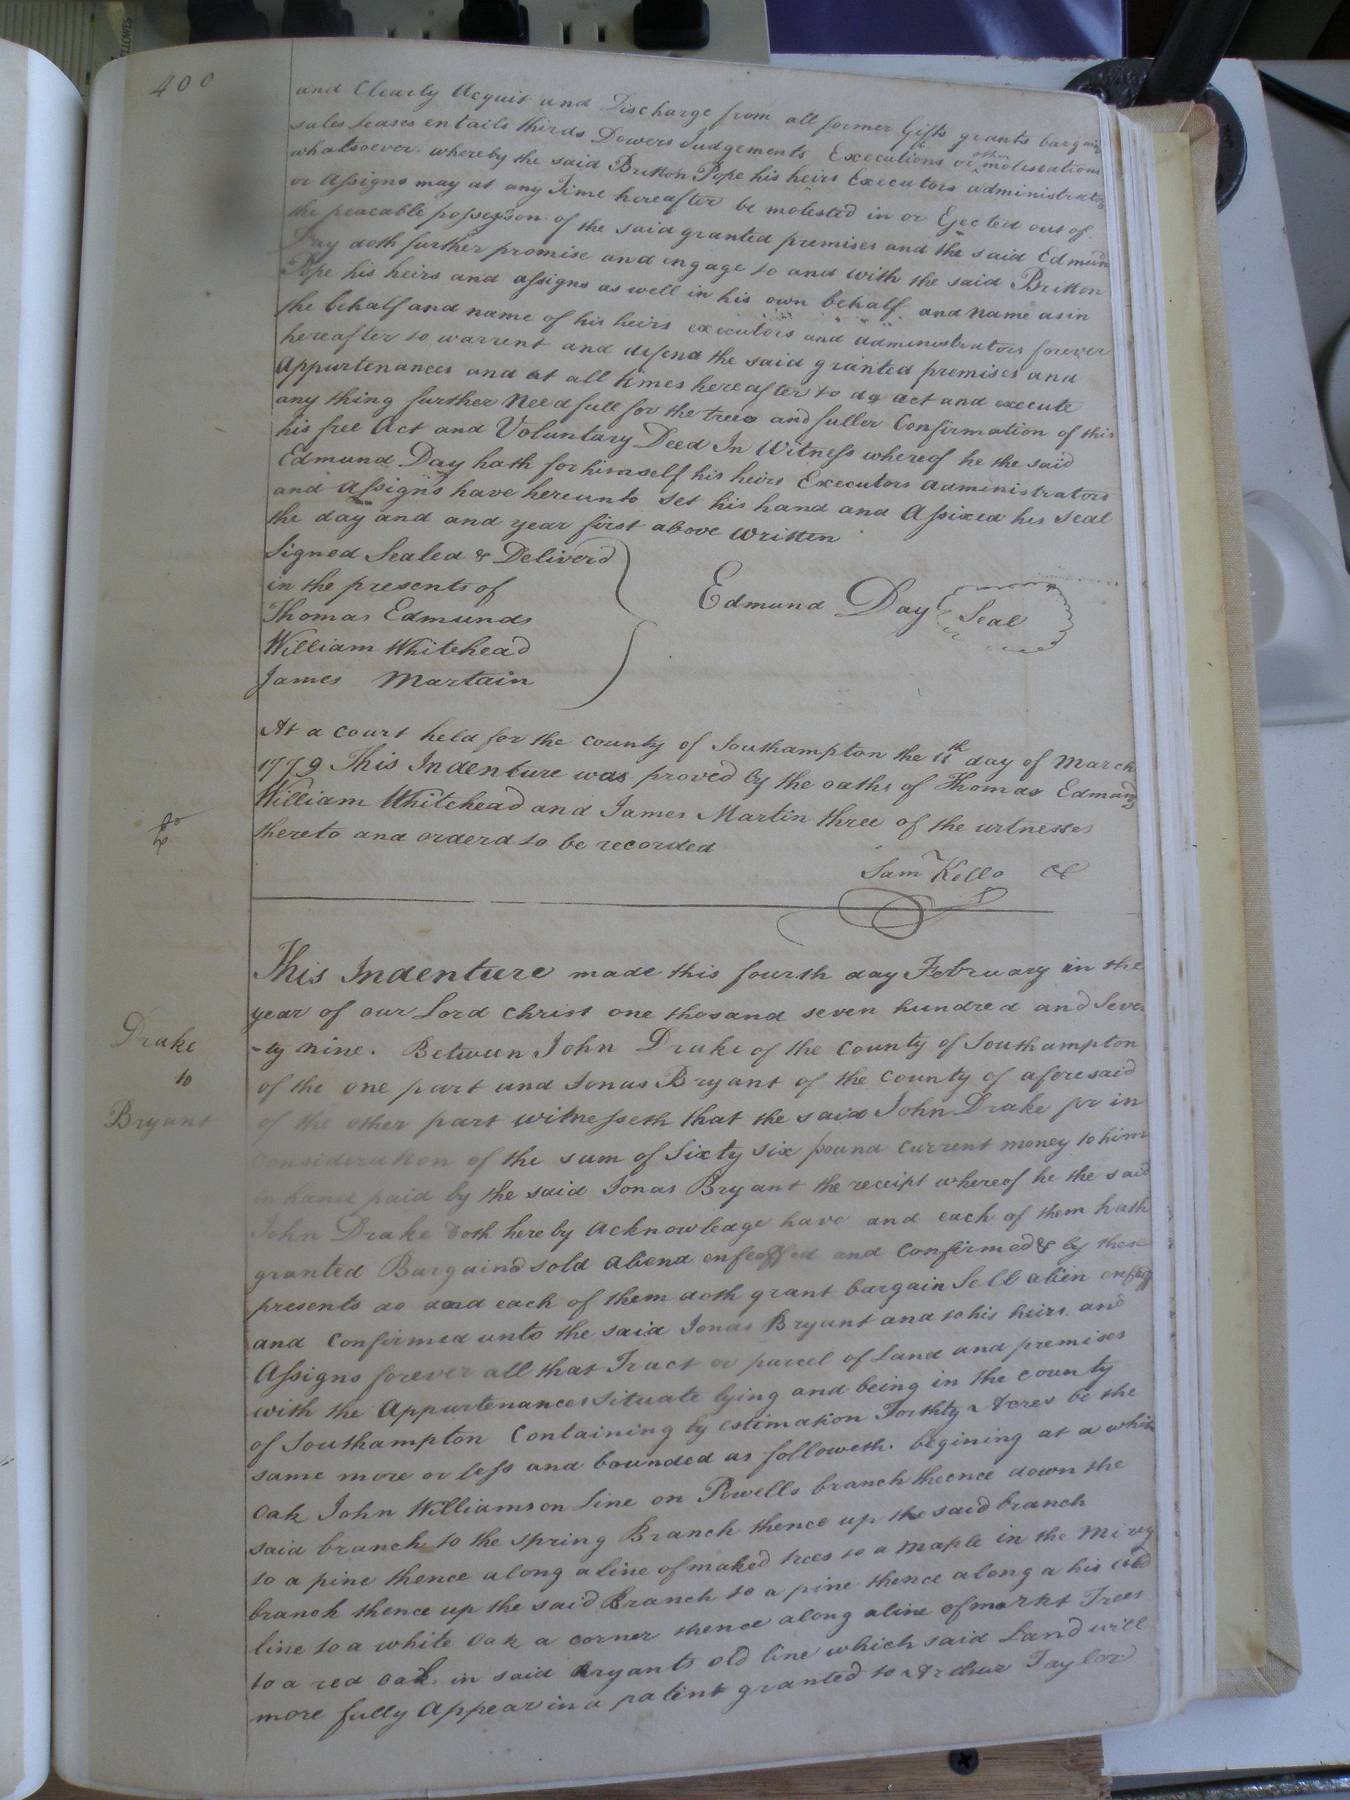 400
and Clearly Acquit and Discharge from all former Gifts grants bargains
sales leases entails thirds Dowers Judgements Executions or other molestations
whatsoever whereby the said Britton Pope his heirs Executors administrators
or Assigns may at any Time hereafter be molested in or Ejected out of
the peacable possession of the said granted premises and the said Edmund
Day doth further promise and ingage to and with the said Britton
Pope his heirs and assigns as well in his own behalf and name as in
the behalf and name of his heirs executors and administrators forever
hereafter to warrent and defend the said granted premises and
Appurtenances and at all times hereafter to do act and execute
any thing further Needfull for the and fuller Confirmation of this
his free Act and Voluntary Deed In Witness whereof he the said
Edmund Day hath for himself his heirs Executors administrators
and Assigns have hereunto set his hand and Affixed his seal
the day and and year first above written
Signed Sealed & Deliverd
in the presents of
Thomas Edmunds
William Whitehead
James Martain
Edmund Day Seal
At a court held for the county of Southampton the 11th day of March
1779 This Indenture was proved by the oaths of Thomas Edmunds
William Whitehead and James Martin three of the witnesses
thereto and orderd to be recorded
Sam Kello
This Indenture made this fourth day February in the
year of our Lord Christ one thosand seven hundred and Seven
-ty nine. Between John Drake of the County of Southampton
Drake
to
Bryant
of the one part and Jonas Bryant of the County of aforesaid
of the other part witnesseth that the said John Drake for in
Consideration of the sum of Sixty six pound Current money to him
in hand paid by the said Jonas Bryant the receipt whereof he the said
John Drake doth hereby acknowledge have and each of them hath
granted Bargaind sold aliend enfeoffed and Confirmed & by these
presents do and each of them doth grant bargain Sell alien enfeoff
and Confirmed unto the said Jonas Bryant and to his heirs and
Assigns forever all that Tract or parcel of Land and premises
with the Appurtenances Situate lying and being in the county
of Southampton Containing by estimation Forthty Acres be the
same more or less and bounded as followeth. begining at a white
oak John Williamson line on Powells branch theence down the
said branch to the spring Branch thence up the said branch
to a pine thence along a line of maked trees to a maple in the Mirey
branch thence up the said Branch to a pine thence along a his old
line to a white oak a corner thence along a line of markt Trees
to a red oak in said Bryants old line which said Land will
more fully Appear in a patent granted to Arthur Taylor